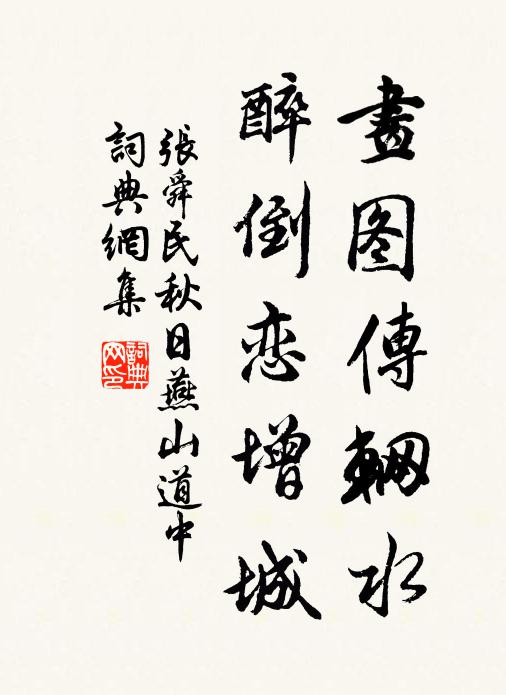 畫图傳輞水
醉倒恋增城
張舜民秋日燕山道中
詞典網集
詞典网印